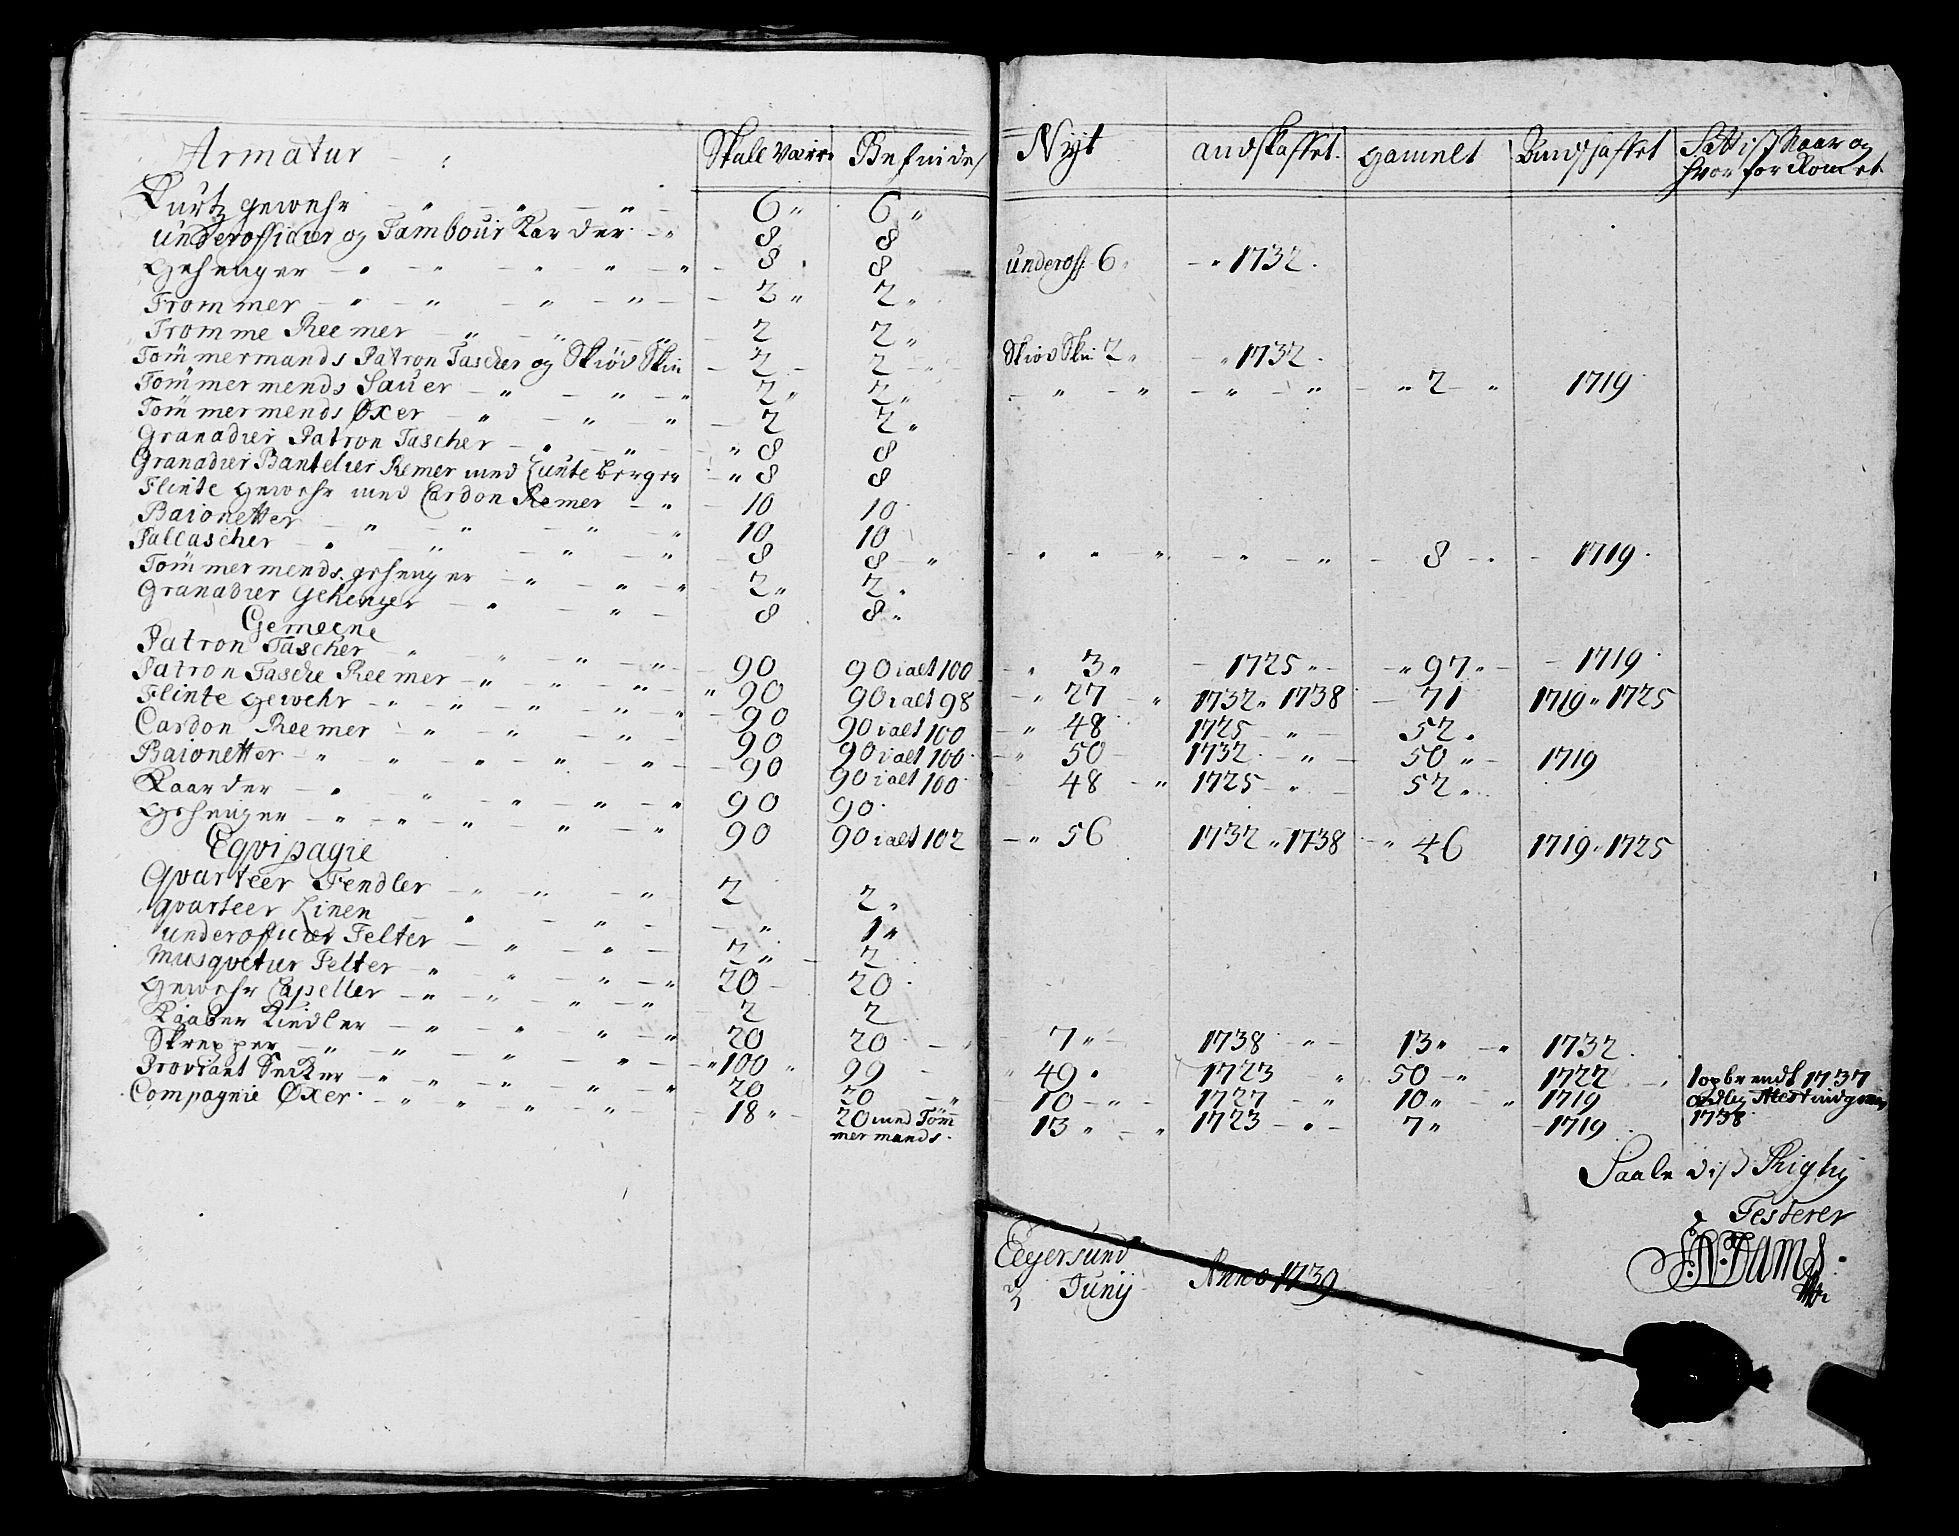 Armatur Skall Være Befindes Nyt andskaffet gammelt andskaffet
hvor for Komet
Kurtz gewehr 6 6
underofficier og Tambour Karder 8 8
Gehenger 8 8 underoff 6 1732
Trommer 2 2
Tromme Reemer 2 2
Tømmermands Patron Tascher og Skiøds Skin 2 2 Skiøds Skin 2 1732
Tømmermends Sauer 2 2 2 1719
Tømmermends Øxer 2 2
Granadier Patron Tascher 8 8
Granadier Bantelier Remer med Lunte berger 8 8
Flinte gewehr med Cardon Remer 10 10
Baionetter 10 10
Pallascher 8 8 8 1719
Tømmermends gehenger 2 2
Granadier Gehenger 8 8
Gemeene
Patron Tascher 90 90 i alt 100 3 1725 97 1719
Patron Tasche Reemer 90 90 i alt 98 27 1732 1738 71 1719 1725
Flinte gewehr 90 90 i alt 100 48 1725 52
Cardon Reemer 90 90 i alt 100 50 1732 50 1719
Baionetter 90 90 i alt 100 48 1725 52
Kaarder 90 90
Gehenger 90 90 i alt 102 56 1732 1738 46 1719 1725
Eqvipagie
Qvarteer Fendler 2 2
qvarteer Linen 1
underofficier Telter 2 2
Musqvetur Telter 20 20
Gewehr Capeller 2 2
Kaaber Kiedler 20 20 7 1738 13 1732
Skrepper 100 99 49 1723 50 1722 1 opbrendt 1737
Proviant Secker 20 20 10 1727 10 1719
Compagnie Øxer 18 20 med Tøm 13 1723 7 1719 1738
mermands
Saale Rigtig
Testerer
Eegersund
3 Junij Anno 1739